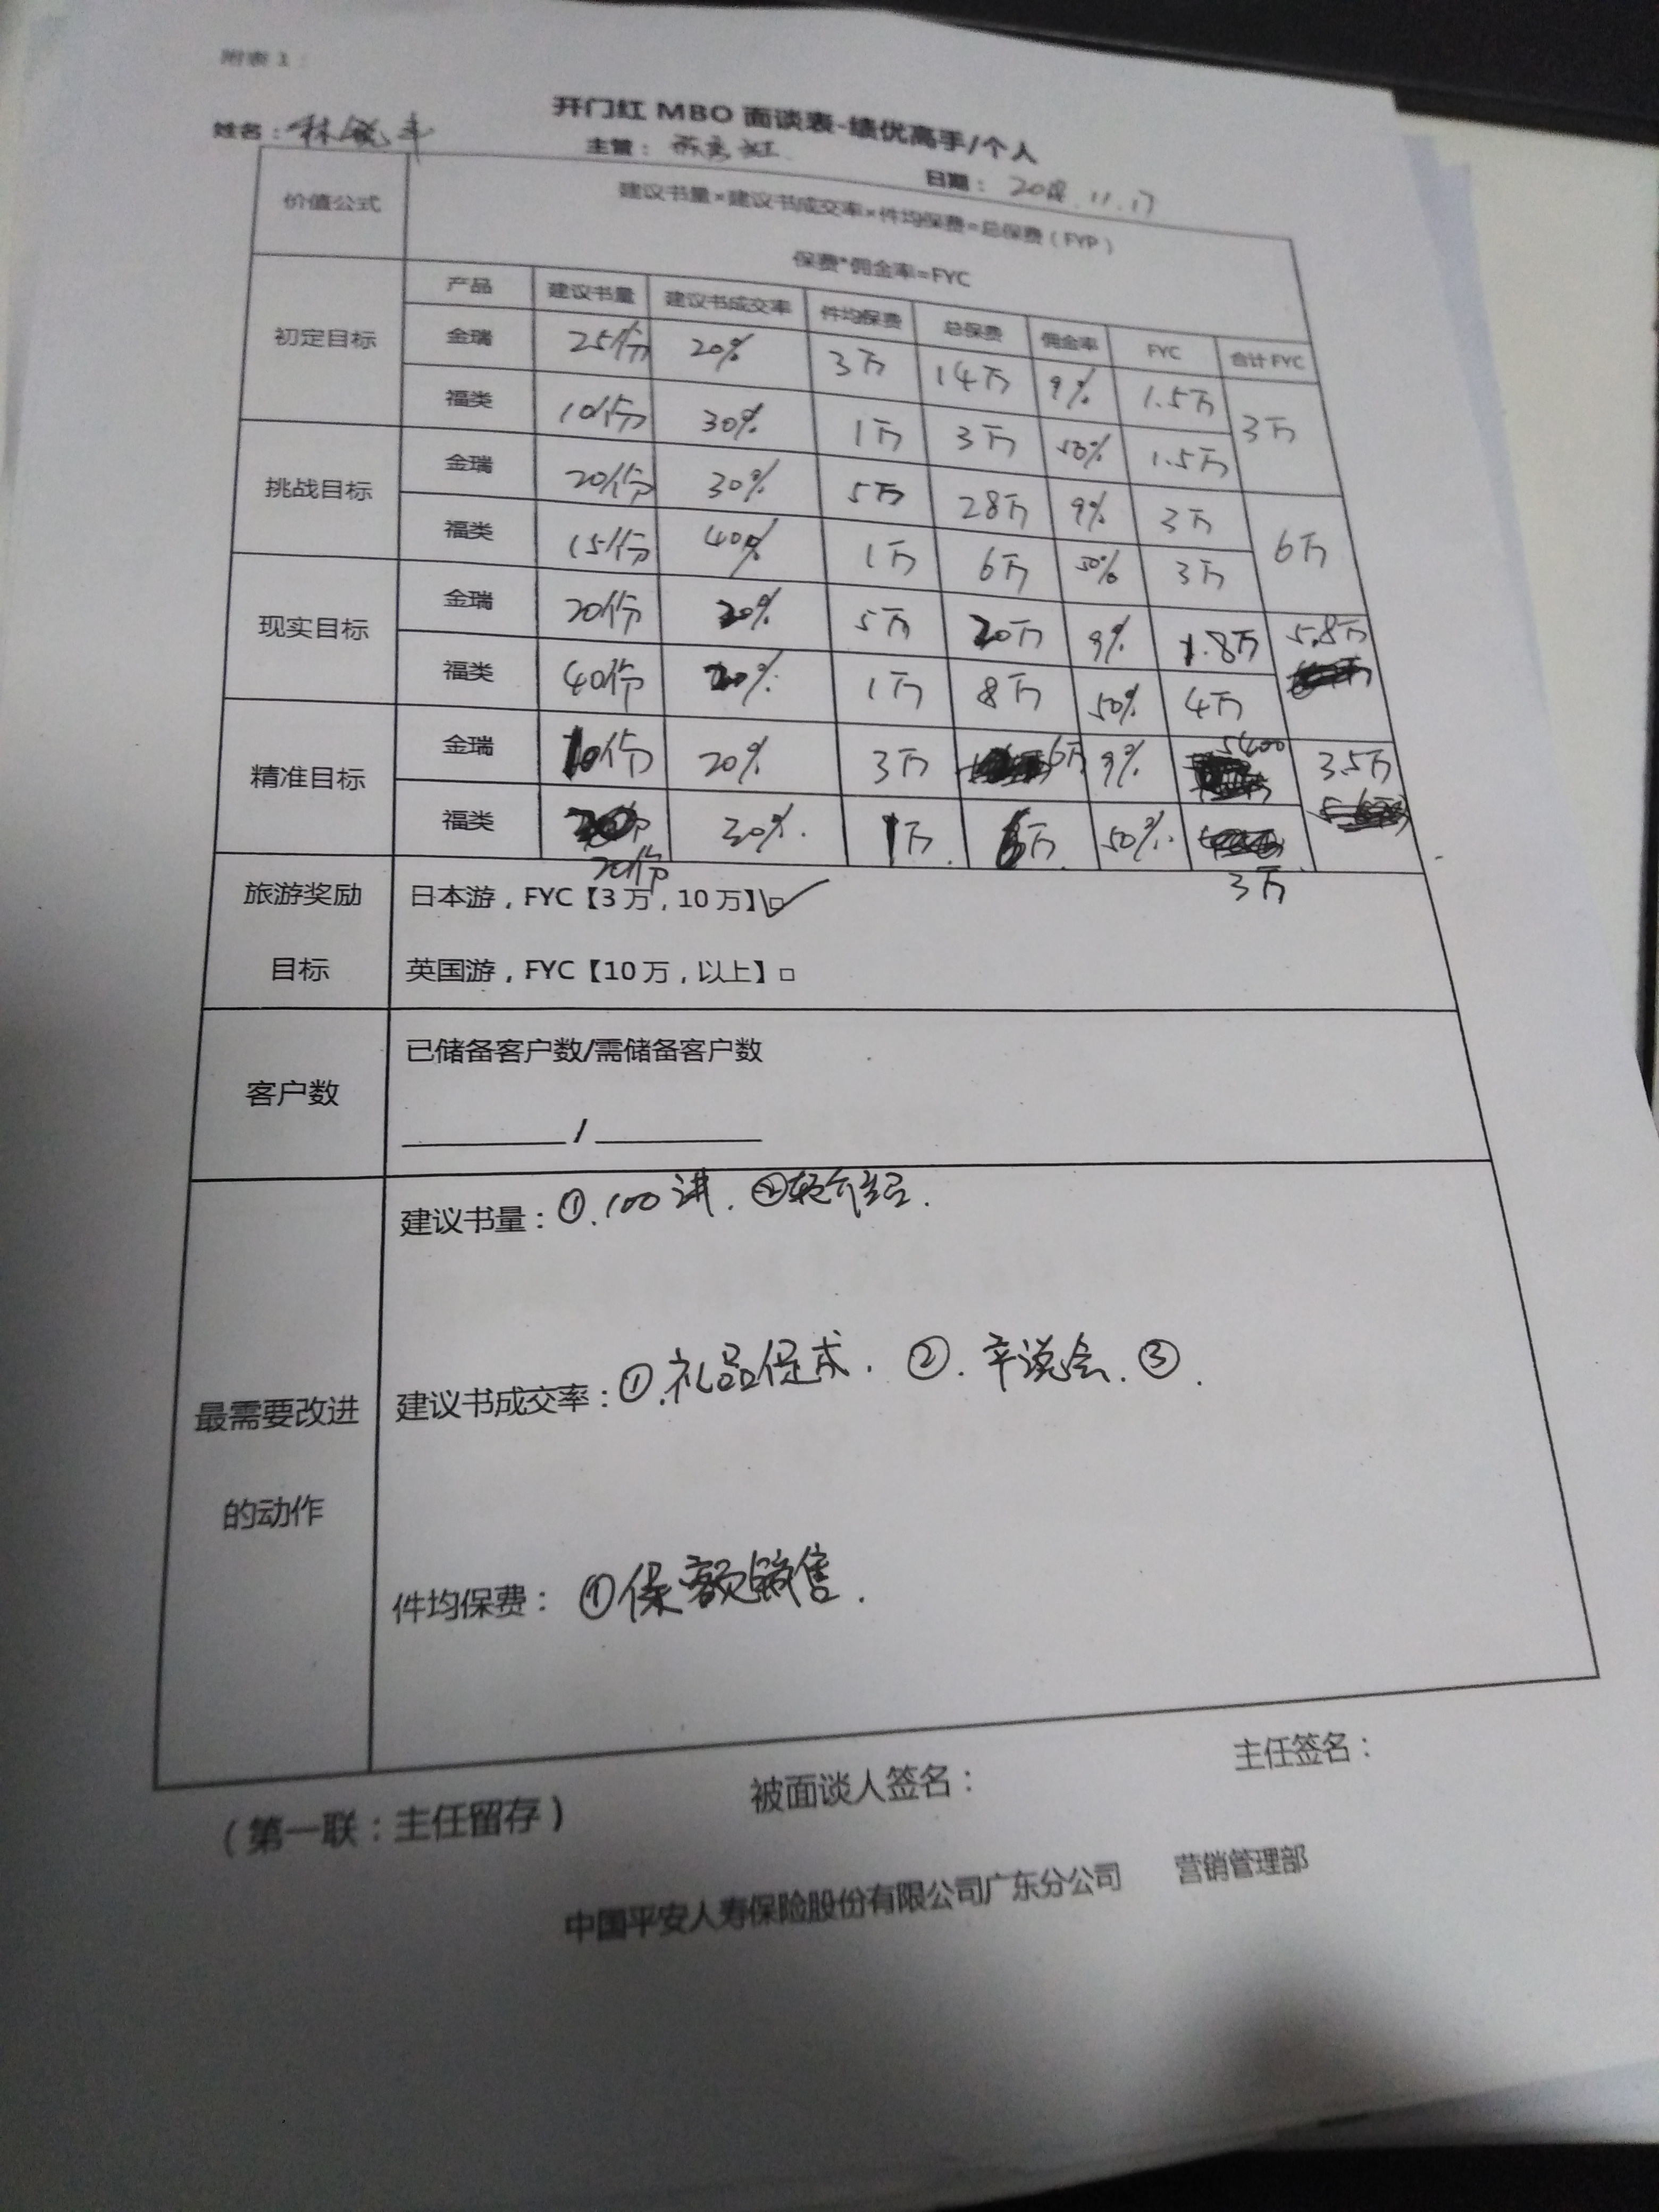 附表 1
开门红 MBO 面谈表-绩优高手/个人
姓名： 主管： 日期： 2018.11.17
价值公式 建议书量×建议书成交率×件均保费=总保费（FYP）
保费*佣金率=FYC
产品 建议书量 建议书成交率 件均保费 总保费 佣金率 FYC 合计 FYC
初定目标 金瑞 25份 20% 3万 14万 9% 1.5万 3万
福类 10份 30% 1万 3万 50% 1.5万
挑战目标 金瑞 20份 30% 5万 28万 9% 3万 6万
福类 15份 40% 1万 6万 50% 3万
现实目标 金瑞 20份 20% 5万 20万 9% 1.8万 5.8万
福类 40份 20% 1万 8万 50% 4万
精准目标 金瑞 10份 20% 3万 6万 9% 5400 3.5万
福类 20份 30% 1万 6万 50% 3万
旅游奖励目标 日本游，FYC【3 万，10 万】□✓
英国游，FYC【10 万，以上】□
客户数 已储备客户数/需储备客户数
/
最需要改进的动作 建议书量：①.100讲.②转介绍.
建议书成交率：①.礼品促成.②.产说会.③.
件均保费：①保额销售.
主任签名：
（第一联：主任留存） 被面谈人签名：
中国平安人寿保险股份有限公司广东分公司 营销管理部